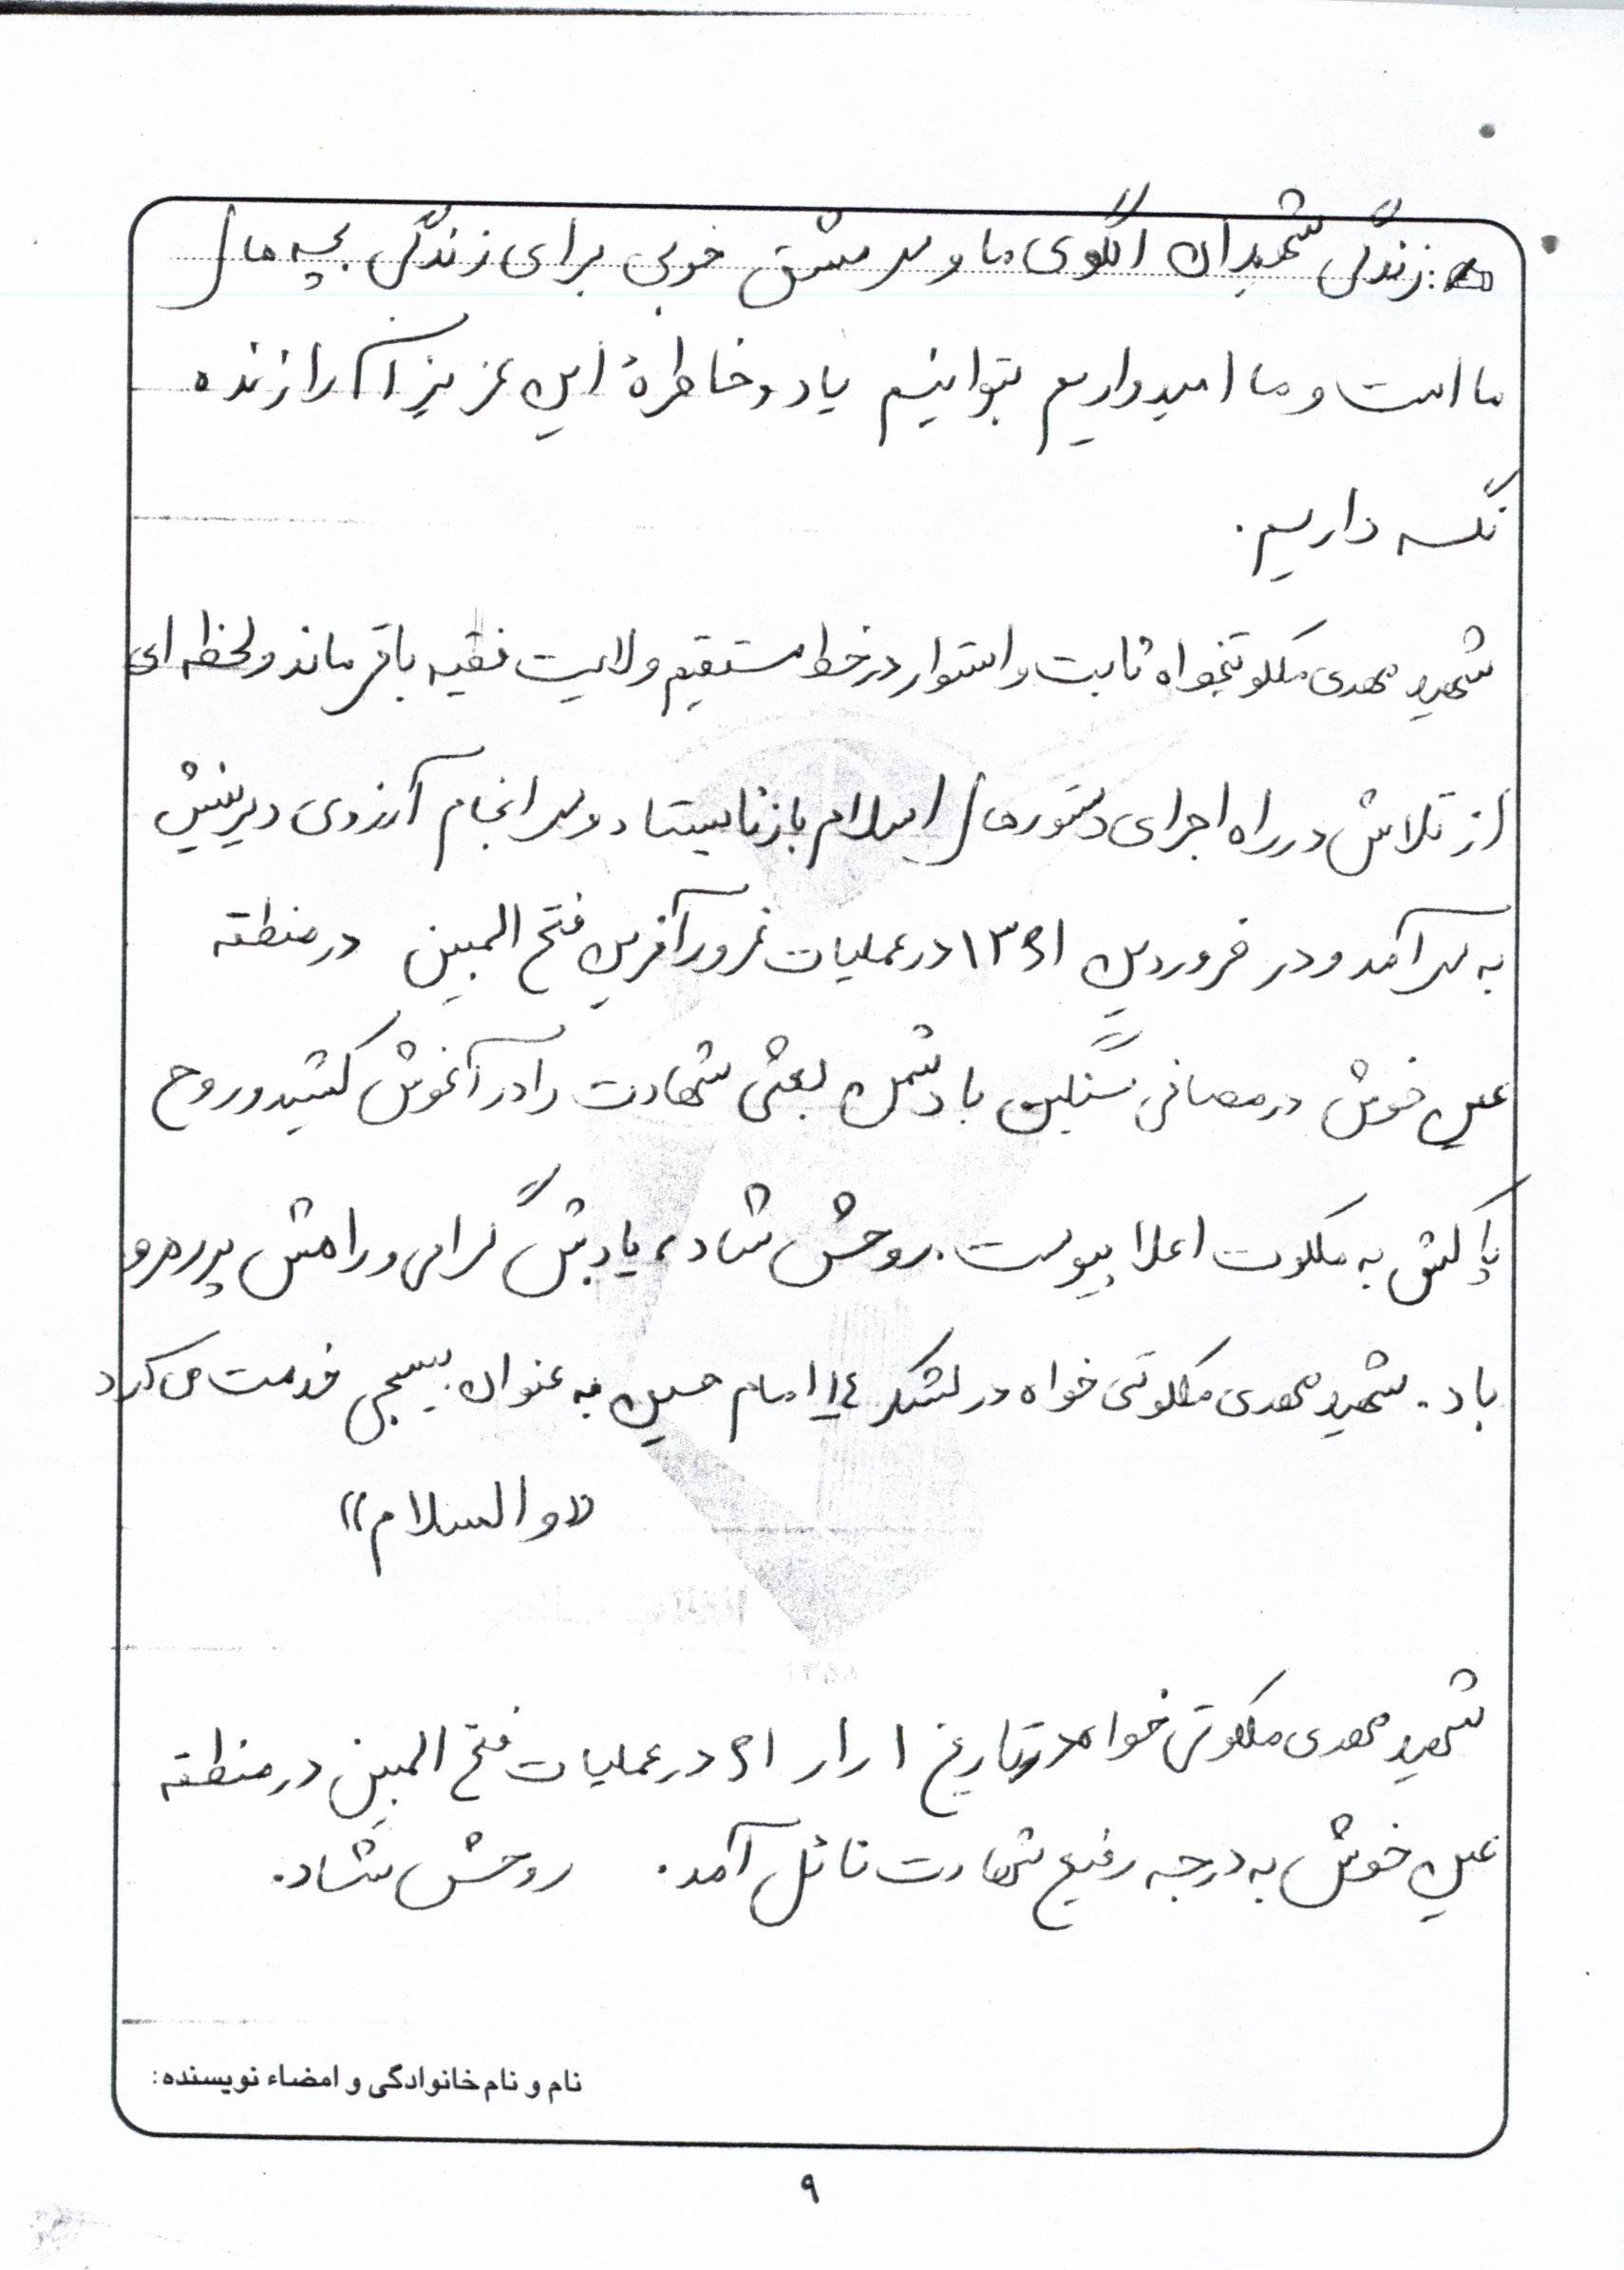 زندگی شهیدان الگوی ما و سرمشق خوبی برای زندگی بچه های
ما است و ما امیدواریم بتوانیم یاد و خاطرهٔ این عزیزان را زنده
نگه داریم.
شهید مهدی ملکوتیخواه ثابت و استوار در خط مستقیم ولایت فقیه باقی ماند و لحظه ای
از تلاش در راه اجرای دستورهای اسلام باز نایستاد و سرانجام آرزوی دیرینش
به سر آمد و در فروردین ۱۳۶۱ در عملیات غرورآفرین فتح المبین در منطقه
عین خوش در مصافی سنگین با دشمن بعثی شهادت را در آغوش کشید و روح
پاکش به ملکوت اعلا پیوست. روحش شاد، یادش گرامی و راهش پر رهرو
باد. شهید مهدی ملکوتی خواه در لشکر ۱۴ امام حسین به عنوان بسیجی خدمت می کرد
«والسلام»
شهید مهدی ملکوتی خواه در تاریخ ۱/۱/۶۱ در عملیات فتح المبین در منطقه
عین خوش به درجه رفیع شهادت نائل آمد. روحش شاد.
نام و نام خانوادگی و امضاء نویسنده:
۹